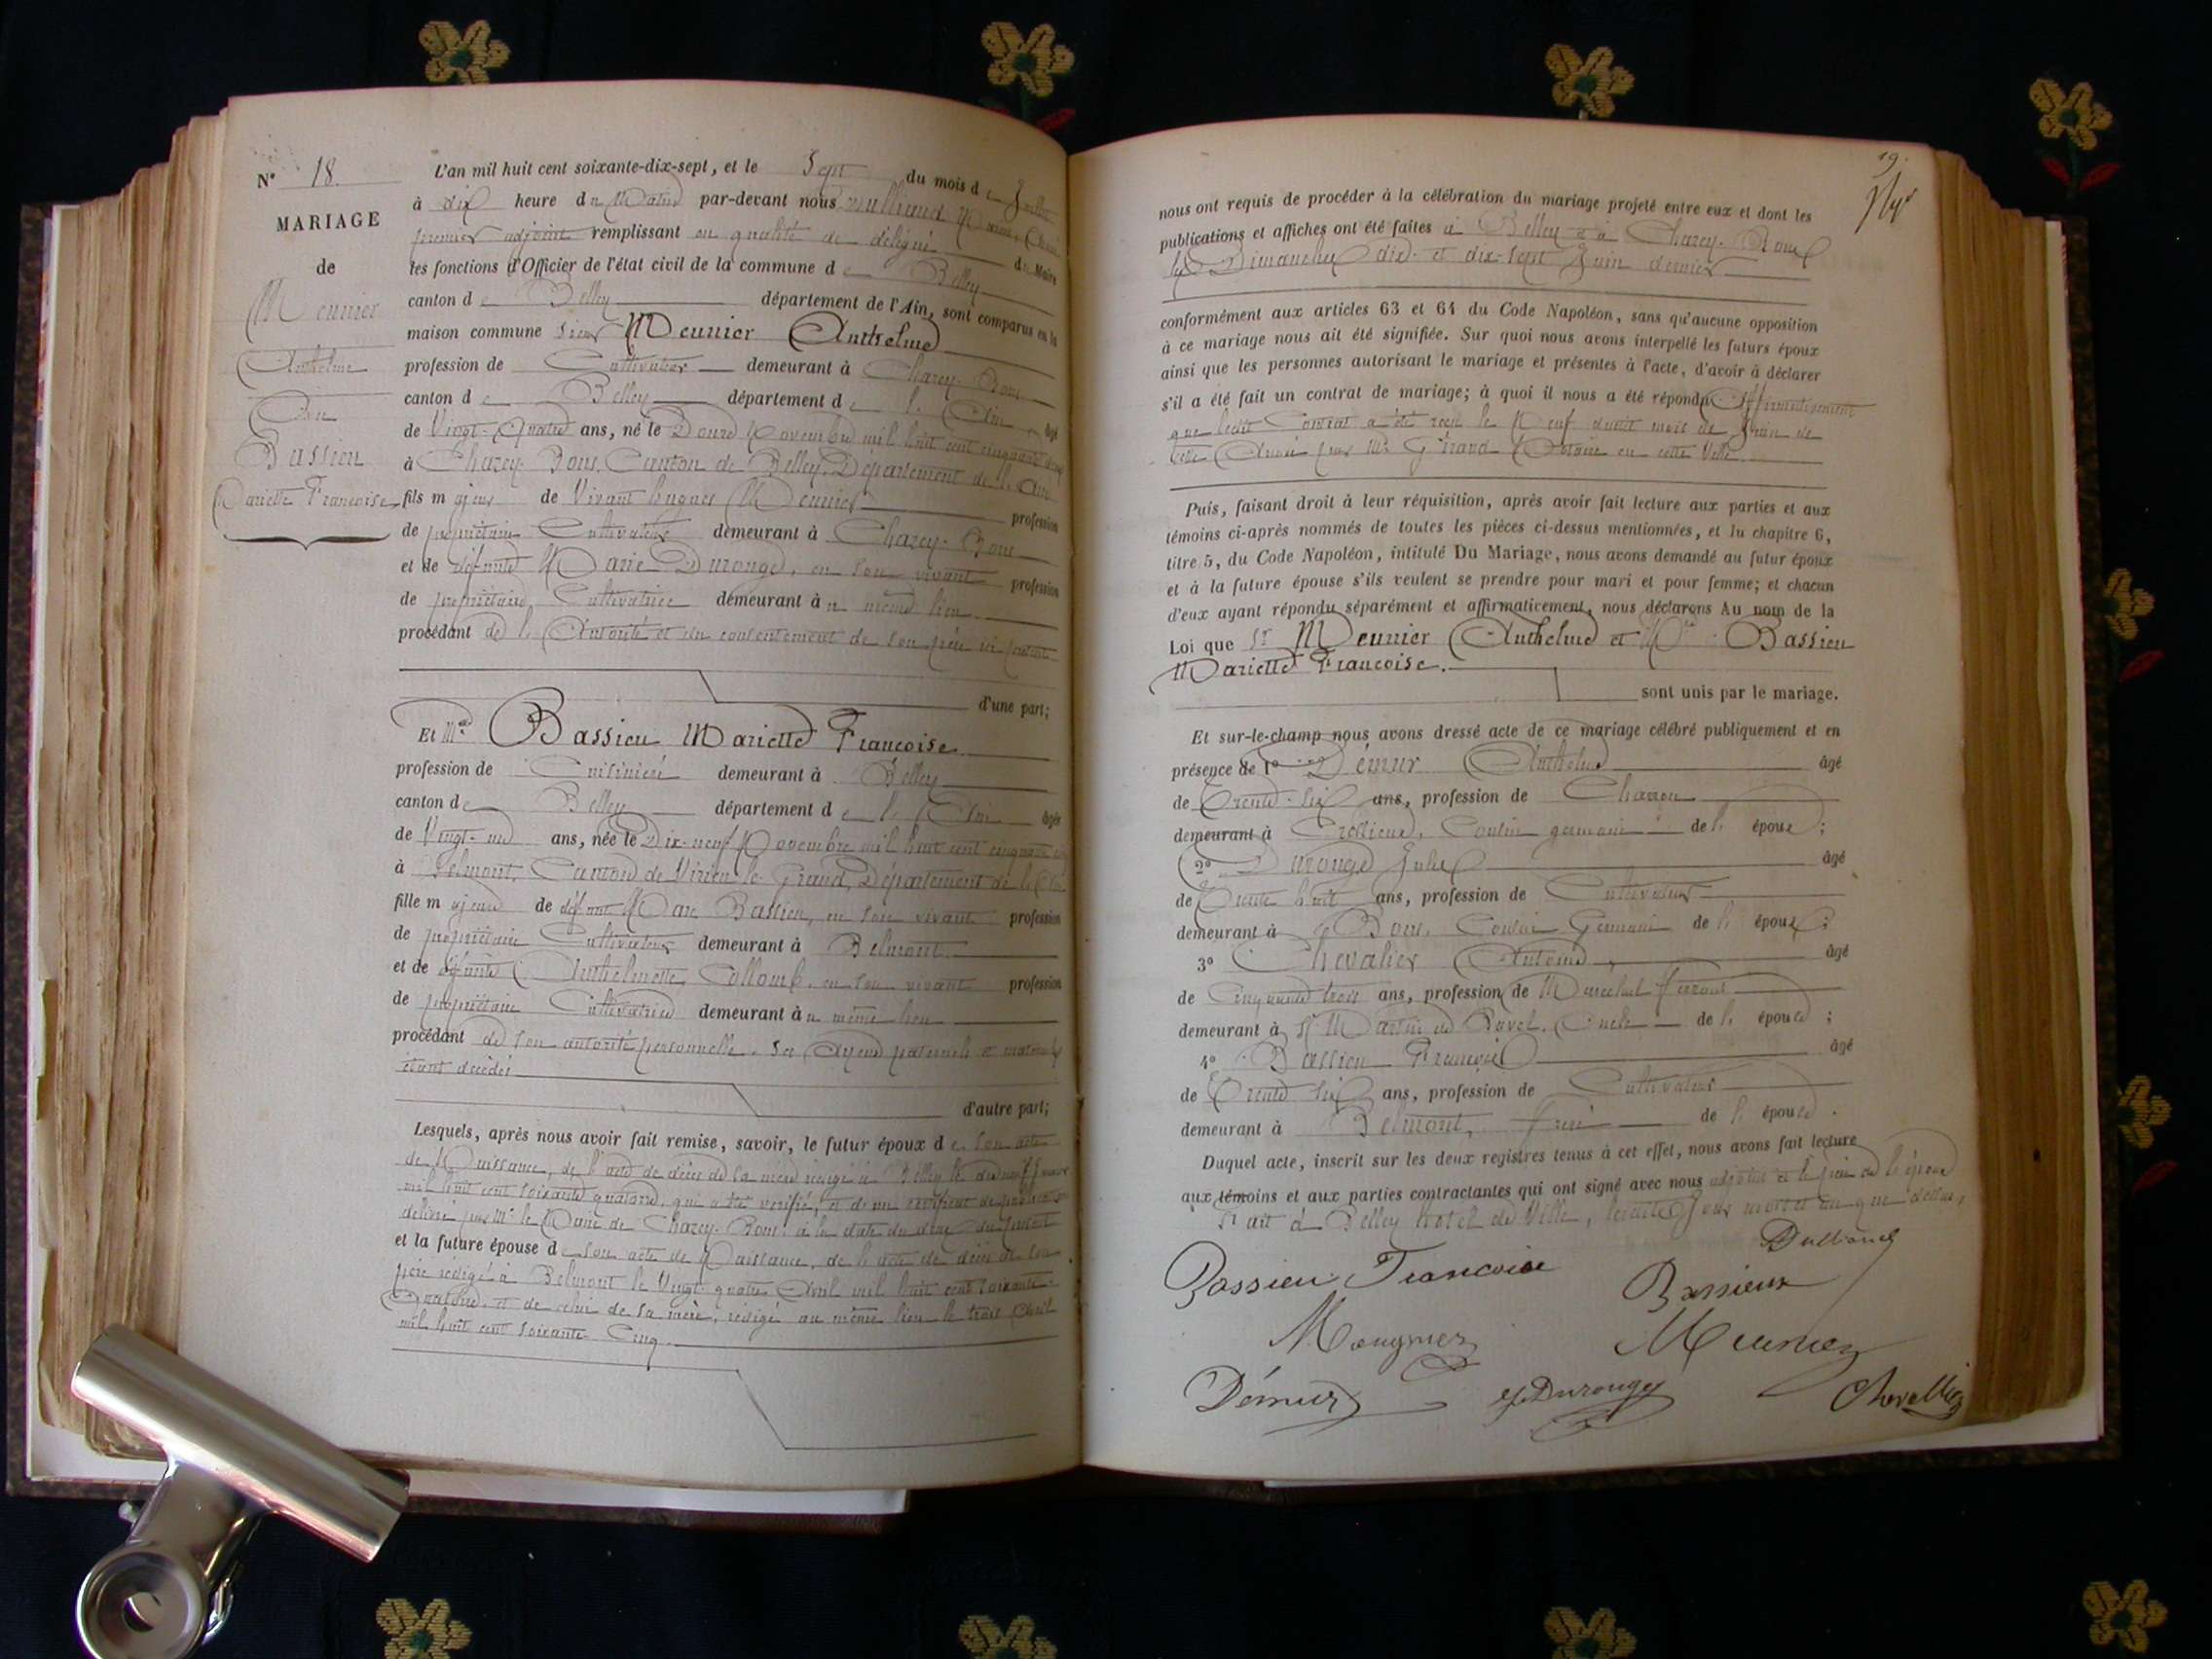 N° 18.
MARIAGE
de
Meunier
Anthelme
Ou
Bassieu
Mariette Francoise
L'an mil huit cent soixante-dix-sept, et le Sept du mois de Juillet
à dix heure du Matin par-devant nous
premier adjoint remplissant en qualité de délégué du Maire
les fonctions d'Officier de l'état civil de la commune de Belley
canton de Belley département de l'Ain, sont comparus en la
maison commune sieur Meunier Anthelme
profession de Cultivateur demeurant à Chazey-Bons
canton de Belley département de l'Ain âgé
de Vingt-Quatre ans, né le Douze Novembre mil huit cent cinquante
à Chazey-Bons, Canton de Belley, Département de l'Ain
fils majeur de Vivant hugues Meunier profession
de propriétaire Cultivateur demeurant à Chazey-Bons
et de défunte Marie Duronge, en son vivant profession
de propriétaire Cultivatrice demeurant au même lieu
procédant de l'Autorité et du consentement de son père ici présent
d'une part;
Et Mlle Bassieu Mariette Francoise
profession de Cuisinière demeurant à Belley
canton de Belley département de l'Ain âgée
de Vingt-un ans, née le Dix-neuf Novembre mil huit cent cinquante cinq
à Belmont, Canton de Virieu-le-Grand, Département de l'Ain
fille majeure de défunt Marc Bassieu, en son vivant profession
de propriétaire Cultivateur demeurant à Belmont
et de défunte Anthelmette Collomb, en son vivant profession
de propriétaire Cultivatrice demeurant au même lieu
procédant de son autorité personnelle, ses Ayeux paternels et maternels
étant décédés
d'autre part;
Lesquels, après nous avoir fait remise, savoir, le futur époux de son acte
de Naissance, de l'acte de décès de sa mère rédigé à Belley le dix neuf Janvier
mil huit cent soixante quatorze, qui a été vérifié, et d'un certificat de publication
délivré par Mr le Maire de Chazey-Bons à la date du deux du présent
et la future épouse de son acte de Naissance, de l'acte de décès de son
père rédigé à Belmont le Vingt-quatre Avril mil huit cent soixante-
Quatorze, et de celui de sa mère, rédigé au même lieu le trois Avril
mil huit cent soixante-Cinq.
19.
nous ont requis de procéder à la célébration du mariage projeté entre eux et dont les
publications et affiches ont été faites à Belley et à Chazey-Bons
les Dimanches dix et dix-sept Juin dernier
conformément aux articles 63 et 64 du Code Napoléon, sans qu'aucune opposition
à ce mariage nous ait été signifiée. Sur quoi nous avons interpellé les futurs époux
ainsi que les personnes autorisant le mariage et présentes à l'acte, d'avoir à déclarer
s'il a été fait un contrat de mariage; à quoi il nous a été répondu Affirmativement
que ledit Contrat a été reçu le Neuf dudit mois de Juin de
cette Année par Me Girand Notaire en cette Ville
Puis, faisant droit à leur réquisition, après avoir fait lecture aux parties et aux
témoins ci-après nommés de toutes les pièces ci-dessus mentionnées, et lu chapitre 6,
titre 5, du Code Napoléon, intitulé Du Mariage, nous avons demandé au futur époux
et à la future épouse s'ils veulent se prendre pour mari et pour femme; et chacun
d'eux ayant répondu séparément et affirmativement, nous déclarons Au nom de la
Loi que Sr Meunier Anthelme et Mlle Bassieu
Mariette Francoise.
sont unis par le mariage.
Et sur-le-champ nous avons dressé acte de ce mariage célébré publiquement et en
présence de 1° Démur Anthelme âgé
de Trente-six ans, profession de Charron
demeurant à Cressieux, Cousin germain de l'époux;
2° Duronge Jules âgé
de Trente huit ans, profession de Cultivateur
demeurant à Bons, Cousin Germain de l'époux;
3° Chevalier Antoine, âgé
de Cinquante trois ans, profession de Maréchal ferrant
demeurant à St Martin de Bavel, Oncle de l'épouse;
4° Bassieu François âgé
de Trente six ans, profession de Cultivateur
demeurant à Belmont, frère de l'épouse.
Duquel acte, inscrit sur les deux registres tenus à cet effet, nous avons fait lecture
aux témoins et aux parties contractantes qui ont signé avec nous adjoint et le père de l'époux
Fait à Belley hotel de Ville, lesdits Jour mois et an que dessus,
Bassieu Francoise
Bassieux
Meunier
Démur
Duronge
Chevallier